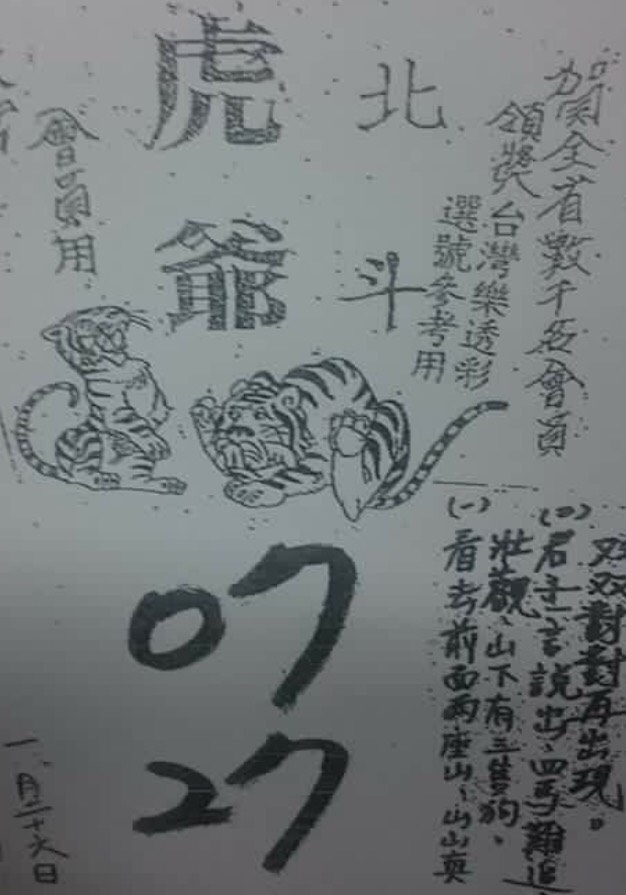 賀全省數千名會員
領獎
台灣樂透彩
選號參考用
北斗
虎爺
會員用
双双對對再出現。
(二)君子一言說出、四馬難追
壯觀、山下有三隻狗、
(一)看去前面兩座山、山山真
07
27
一月二十六日